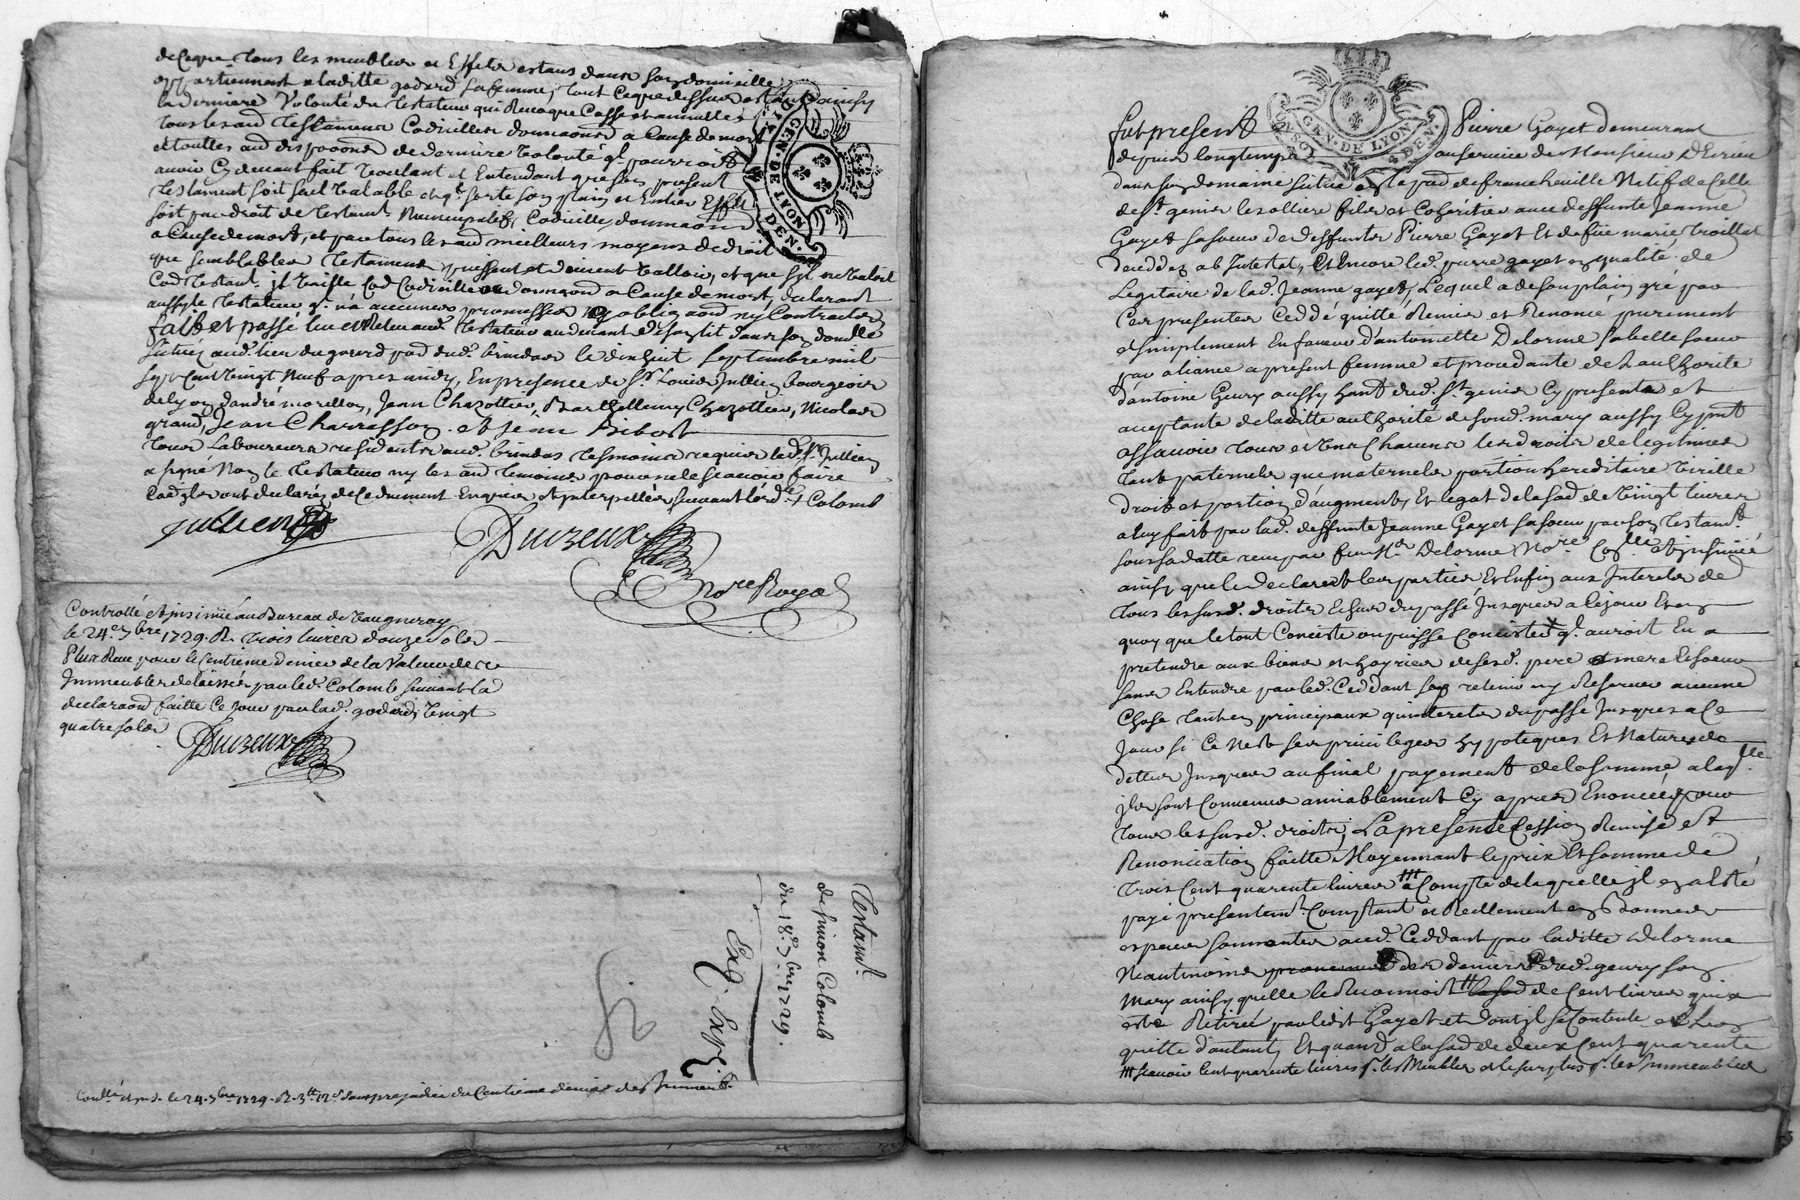 de ceque tous les meubles et Effets estans dans son domicille
appartiennent a laditte godard sa femme, tout ceque dessus estant ainsy
la derniere Volonté du testateur qui Revoque Casse et annulle
tous les aud testamens Codicilles donnaons a Cause de mort
et touttes aud dispoons de derniere Volonté ql pourroit
avoir Cy devant fait Voulant et Entendant que son present
testament soit seul Valable et ql sorte son plain et Entier Effet
soit par droit de testamt Nuncupatif, Codicille donnaon
a Cause de mort, et par tous les aud meilleurs moyens de droit
que semblables testamens puissent et doivent Valloir, et que sil ne Valoit
declarant
aussy le testateur ql n'a aucunes promesses obligaons ny Contracts
fait et passé leu et Releu aud. testateur au devant de son lit dans son domlle
situé aud. lieu du gourd par. dud. brindas le dixhuit septembre mil
sept Cent Vingt Neuf apres midy, En presence de sr Louis Jullien bourgeois
de Lyon, d'andré morellon, Jean Chazottier, Barthellemy Chazottier, Nicolas
grand, Jean Charrasson et Jean Ribost
tous Laboureurs residants aud. brindas tesmoins requis led. sr. Jullien
a signé Non le testateur ny les aud temoins pour ne le scavoir faire
Jullien
Duizeux
Nore Royal
Controllé et insinué au Bureau de Vaugneray
le 24.e 7bre 1729. R. trois livres douze sols
Plus Receu pour le Centieme denier de la Valeur des
Immeubles delaissés par led. Colomb suivant la
declaraon faitte Ce jour par lad. godard, Vingt
quatre sols
Duizeux
Testamt.
de simon Colomb
du 18.e 7bre 1729.
Exg. Exp.
Conllé et ins. le 24. 7bre 1729. R. 3tt 12s sans prejudice du Centieme denier des Immeub.
GEN. DE LYON
DEN.
GEN. DE LYON
4 DEN.
fut present Pierre Gayet demeurant
depuis longtemps au service de Monsieur
dans son domaine situé en la par. de francheville Natif de celle
de st. genis les olliere fils et Coheritier avec deffunte Jeanne
Gayet sa soeur de deffunts Pierre Gayet Et de feüe marie
decedde ab Intestat, Et Encore led. pierre gayet en qualité de
Legataire de lad. Jeanne gayet, Lequel a de son plain gré par
Ces presentes Ceddé quitté Remis et Renoncé purement
et simplement En faveur d'antoinette Delorme sa belle soeur
par aliance a present femme et procedante de L'authorité
d'antoine Geury aussy hant dud. st. genis Cy presente et
acceptante de laditte authorité de sond. mary aussy Cy pnt
assavoir tous et Uns Chacuns les droits de legitimes
tant paternels que maternels portion hereditaire Virille
droits et portion d'augment, Et legat de la somme de Vingt livres
a luy fait par lad. deffunte Jeanne Gayet sa soeur par son testamt.
sous sa datte receu par feu Me Delorme Nore. Et insinué
ainsy que le declarent les parties Et Enfin aux Interets de
tous les susd. droits Echus du passé Jusques a ce jour Et en
quoy que le tout Conciste ou puisse Concister ql. auroit Eu a
pretendre aux biens et hoyries de sesd. pere et mere Et soeur
sans Entendre par led. Ceddant s'en retenir ny Reserver aucune
Chose tant en principaux qu'interets du passé Jusques a Ce
Jour si Ce n'est ses privileges hypoteques Et Natures de
dettes Jusques au final payement de la somme a laqlle
ils sont Convenus amiablement Cy apres Enoncée pour
tous les susd. droits, La presente Cession Remise et
Renonciation faitte Moyennant le prix Et somme de
trois Cent quarente livres a Compte de laquelle Il en a Esté
payé presentemt. Comptant et Reellement en Bonnes
especes sonnantes aud. Ceddant par laditte Delorme
Neantmoins des deniers dud. geury son
mary ainsy quelle le Reconnoit de Cent livres qui a
esté Retiré par ledit Gayet et dont Il se Contente et L'en
quitte d'autant, Et quand a la somme de deux Cent quarente
scavoir Cent quarente livres p. les Meubles et le surplus p. les Immeubles